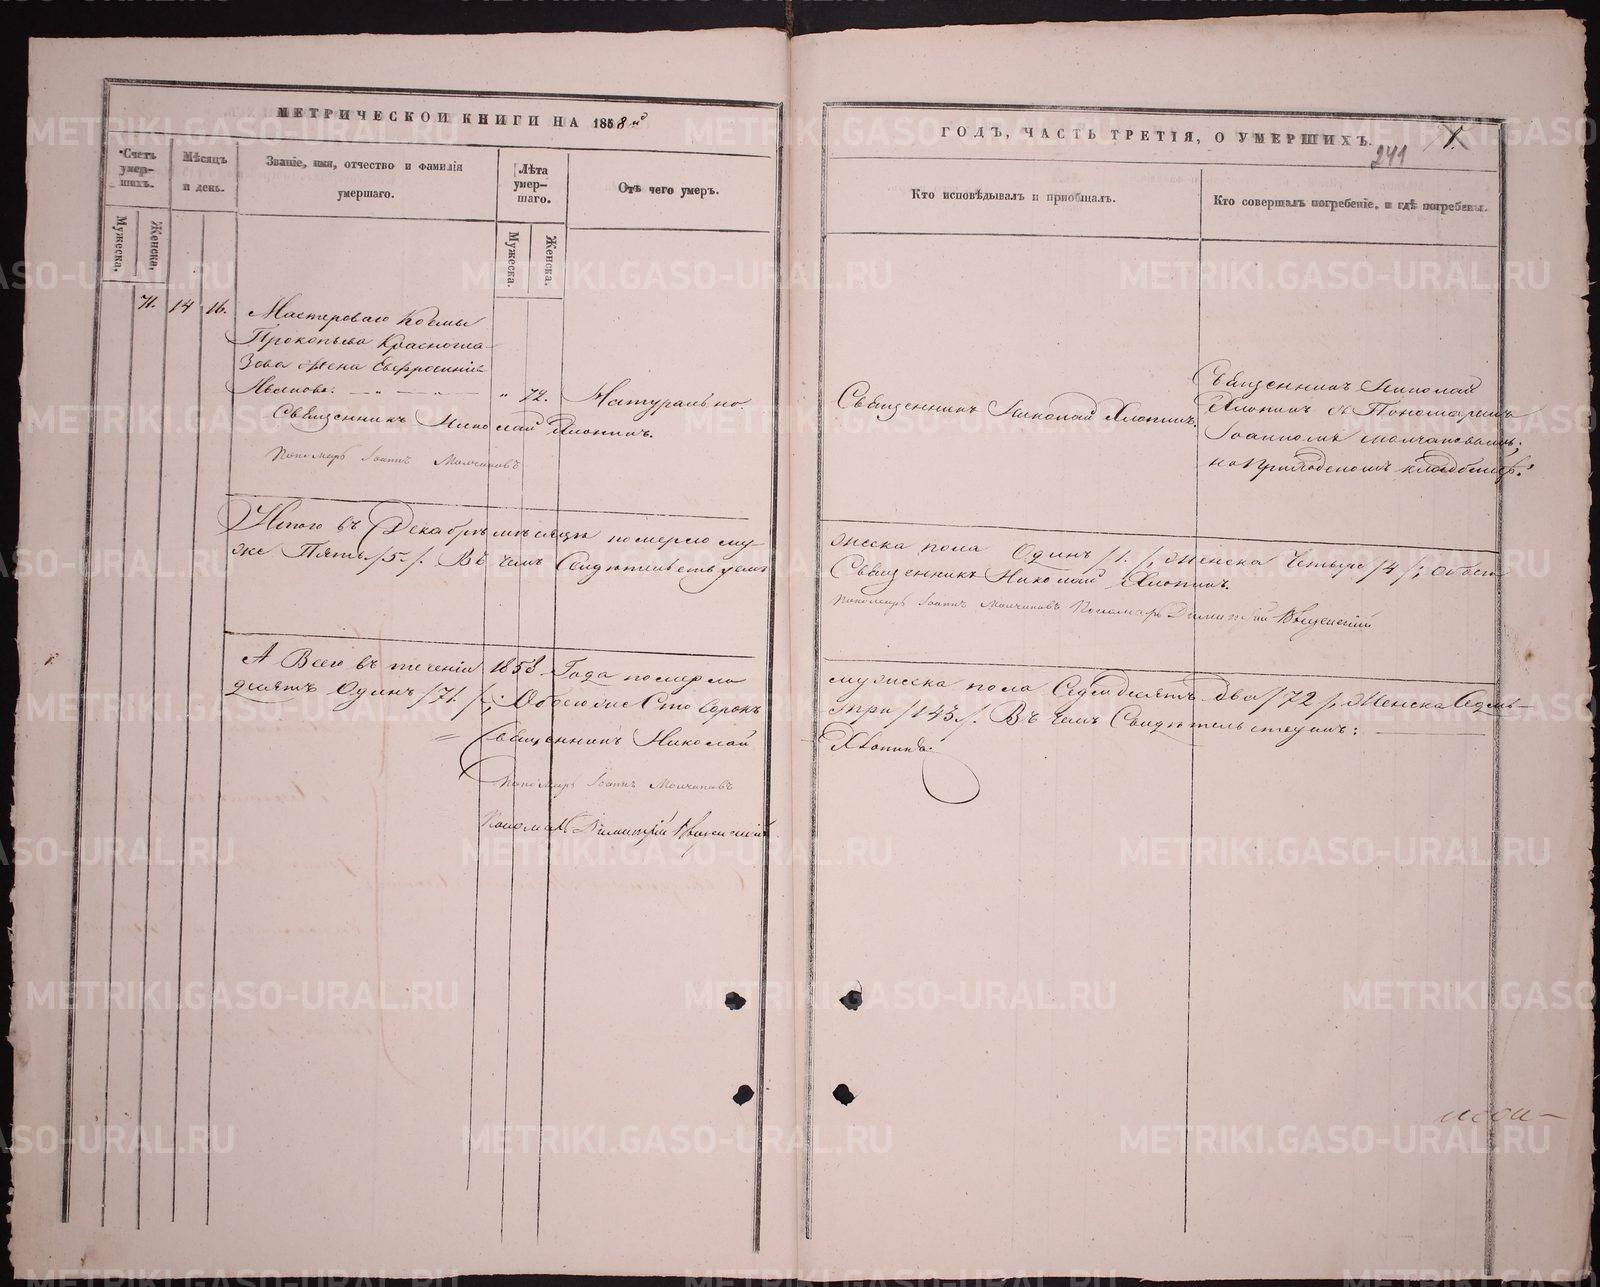 МЕТРИЧЕСКОЙ КНИГИ НА 1858й
ГОДЪ, ЧАСТЬ ТРЕТІЯ, О УМЕРШИХЪ.
241
Счетъ умер-шихъ.
Мужеска.
Женска.
Мѣсяцъ и день.
Званіе, имя, отчество и фамилія
умершаго.
Лѣта умер-шаго.
Мужеска.
Женска.
Отъ чего умеръ.
Кто исповѣдывалъ и пріобщалъ.
Кто совершалъ погребеніе, и гдѣ погребены.
71. 14 16.
Мастероваго Козмы
Прокопьева Красногла-
зова жена Евфросинія
Иванова. " 72. Натурально.
Священникъ Николай Хлопинъ.
Пономарь Іоаннъ Молчановъ
Священникъ Николай Хлопинъ.
Священникъ Николай
Хлопинъ съ Пономаремъ
Іоанномъ Молчановымъ;
на приходскомъ кладбищѣ.
Итого въ Декабрѣ мѣсяцѣ померло му
жеска пола Одинъ /1./, Женска Четыре /4/; Обоего
же Пять /5./. Въ чемъ Свидѣтельствуемъ
Священникъ Николай Хлопинъ.
Пономарь Іоаннъ Молчановъ Пономарь Димитрій
А Всего въ теченіи 1858 Года померло
мужеска пола Седмьдесятъ два /72/, Женска Седмь-
десятъ Одинъ /71./; Обоего же Сто сорокъ
три /143./. Въ чемъ Свидѣтельствуемъ:
Священникъ Николай
Хлопинъ.
Пономарь Іоаннъ Молчановъ
Пономарь Димитрій
METRIKI.GASO-URAL.RU